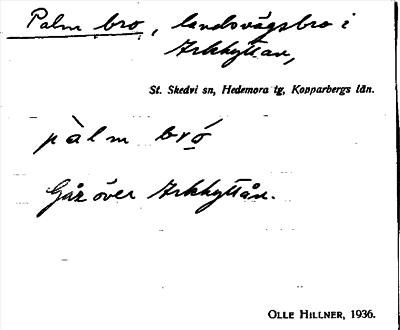 Palm bro, landsvägsbro i
Arkhyttan,
St. Skedvi sn, Hedemora tg, Kopparbergs län.
pàlm bró
Går över Arkhyttån.
OLLE HILLNER, 1936.